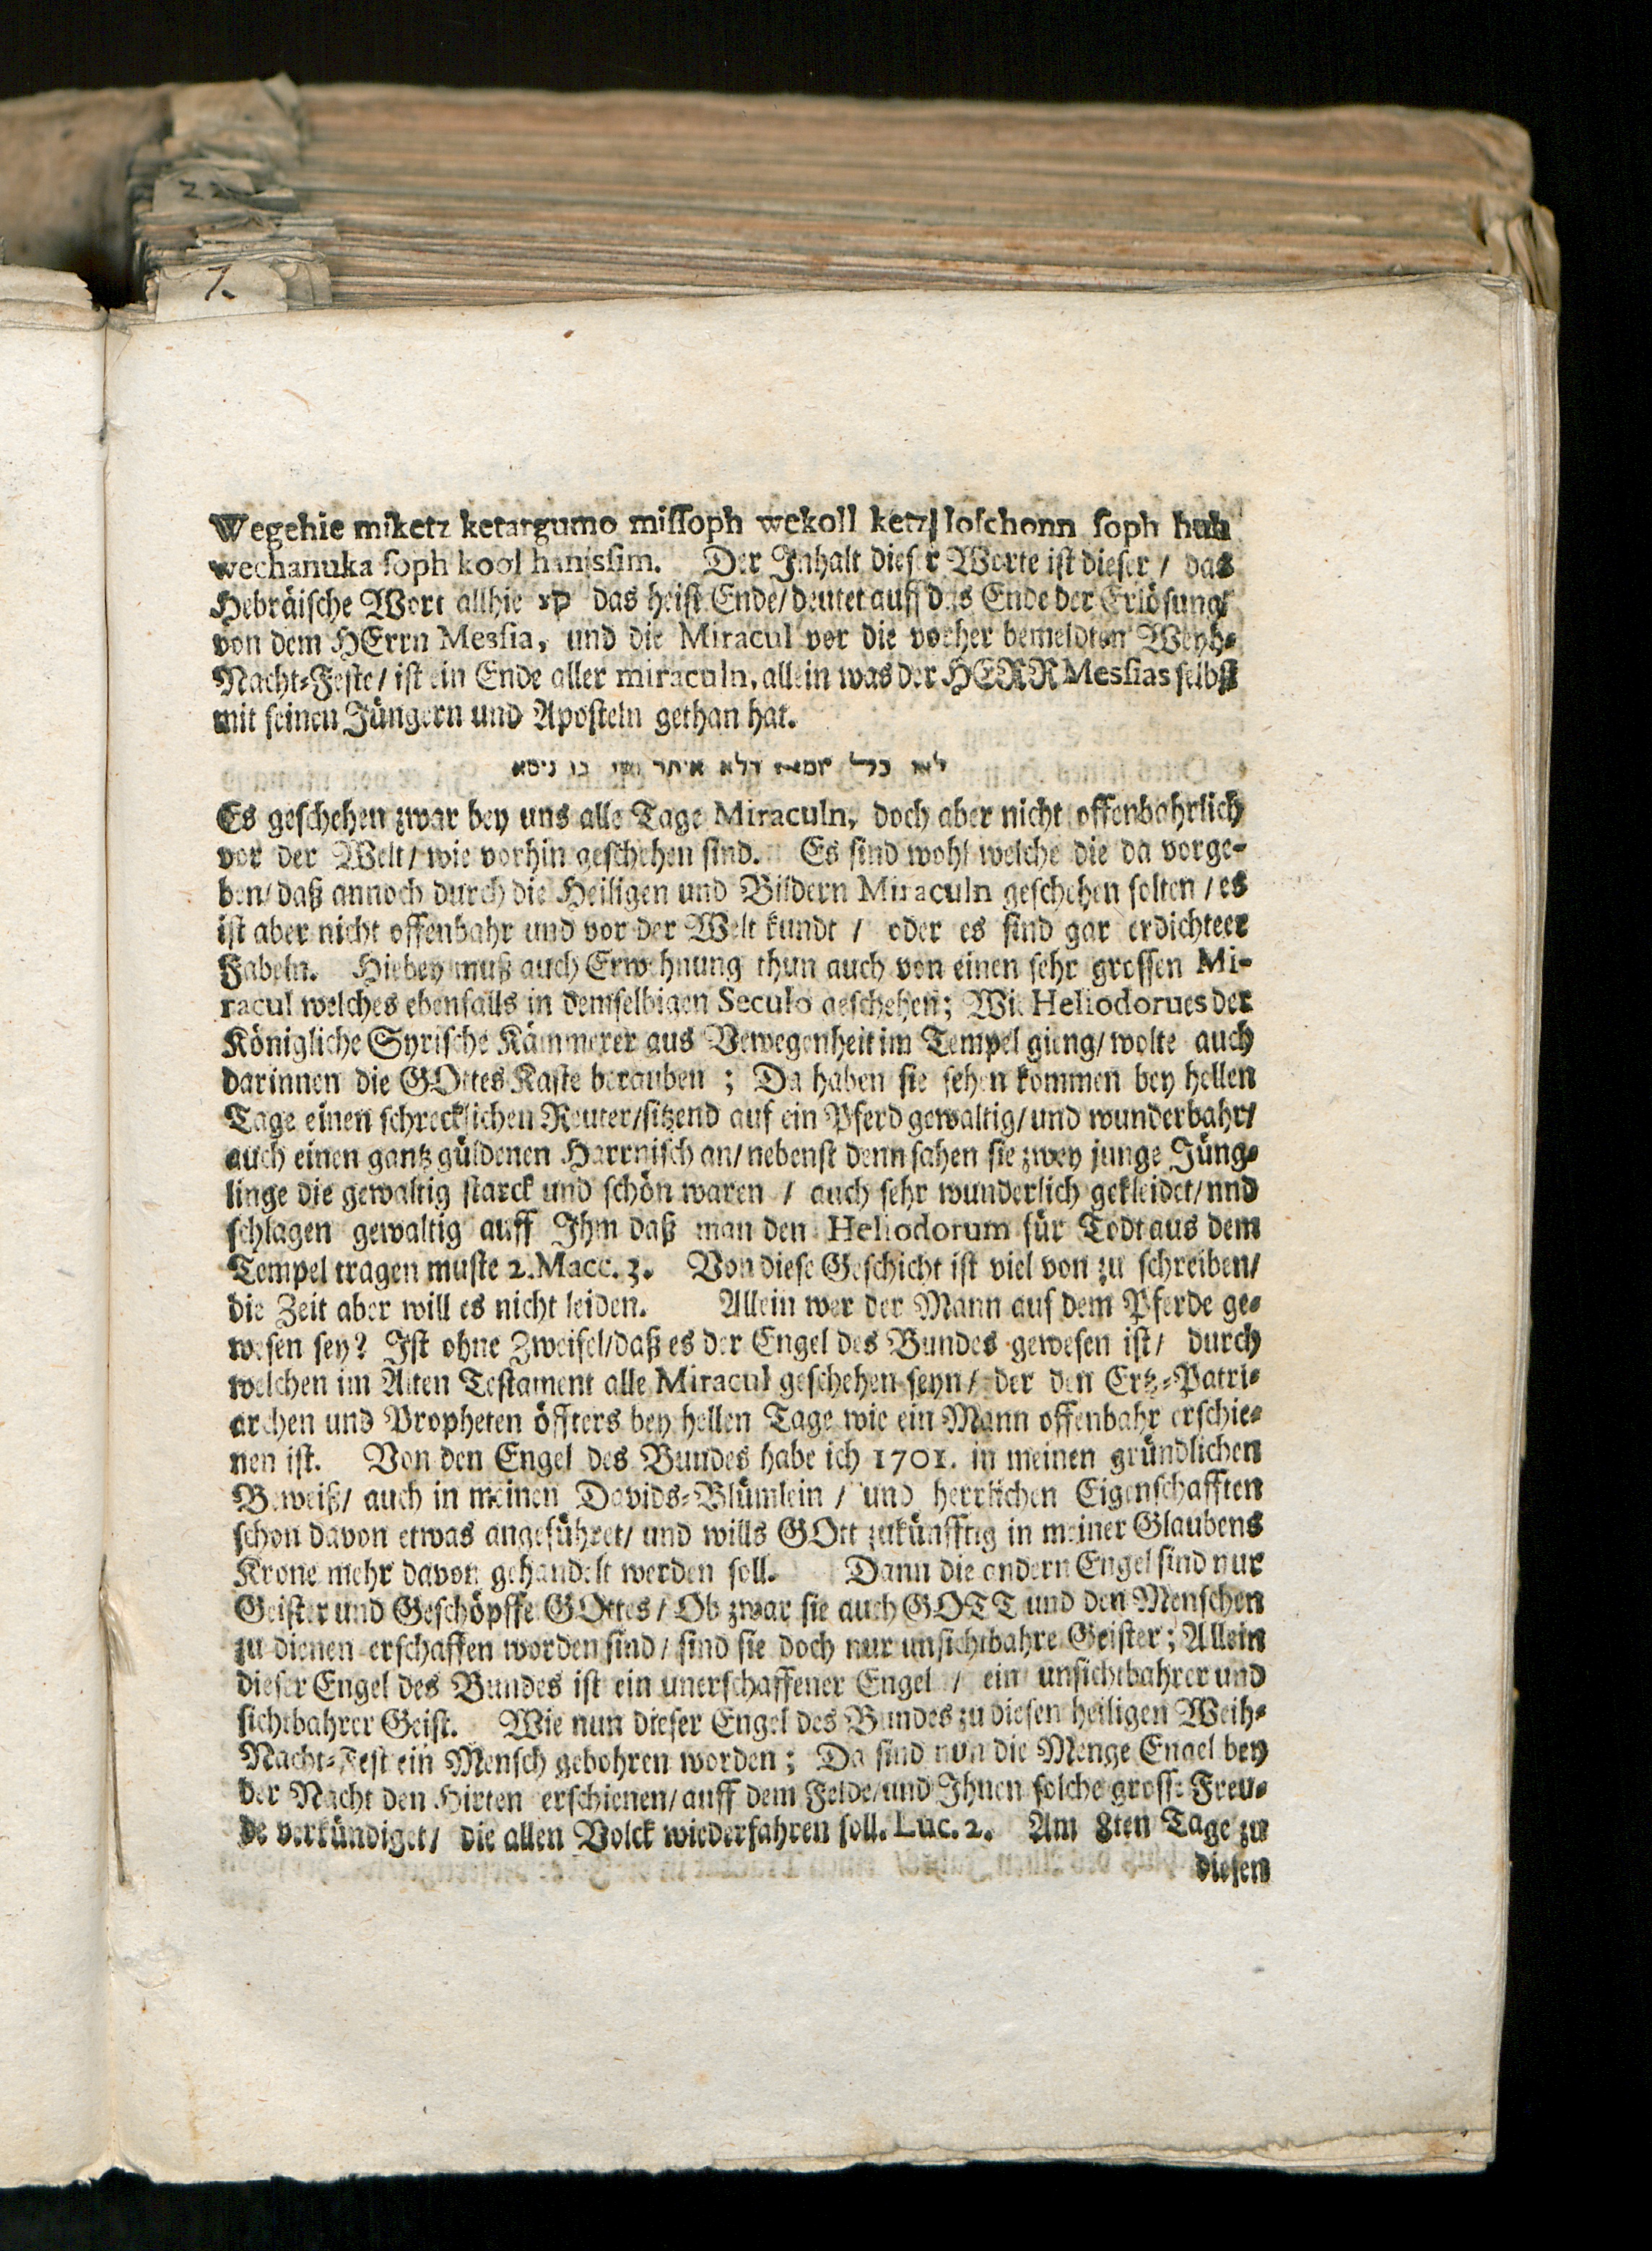 7.
Wegehie miketz ketargumo missoph wekoll ketz/ loschonn soph huh
wechanuka soph kool hanissim. Der Inhalt dieser Worte ist dieser / das
Hebräische Wort allhie קץ das heist Ende/ deutet auff das Ende der Erlösung/
von dem HErrn Messia, und die Miracul vor die vorher bemeldten Weyh-
Nacht-Feste/ ist ein Ende aller miraculn, allein was der HERR Messias selbst
mit seinen Jüngern und Aposteln gethan hat.
כל דלא איתר בו ניסא
Es geschehen zwar bey uns alle Tage Miraculn, doch aber nicht offenbahrlich
vor der Welt/ wie vorhin geschehen sind. Es sind wohl welche die da vorge-
ben/ daß annoch durch die Heiligen und Bildern Miraculn geschehen solten / es
ist aber nicht offenbahr und vor der Welt kundt / oder es sind gar erdichteer
Fabeln. Hiebey muß auch Erwehnung thun auch von einen sehr grossen Mi-
racul welches ebenfalls in demselbigen Seculo geschehen; Wie Heliodorues der
Königliche Syrische Kämmerer aus Vewegenheit im Tempel gieng/ wolte auch
darinnen die GOttes Kaste berauben ; Da haben sie sehen kommen bey hellen
Tage einen schrecklichen Reuter/ sitzend auf ein Pferd gewaltig/ und wunderbahr/
auch einen gantz güldenen Harrnisch an/ nebenst denn sahen sie zwey junge Jüng-
linge die gewaltig starck und schön waren / auch sehr wunderlich gekleidet/ nnd
schlagen gewaltig auff Ihm daß man den Heliodorum für Todt aus dem
Tempel tragen muste 2. Macc. 3. Von diese Geschicht ist viel von zu schreiben/
die Zeit aber will es nicht leiden. Allein wer der Mann auf dem Pferde ge-
wesen sey? Ist ohne Zweifel/ daß es der Engel des Bundes gewesen ist/ durch
welchen im Alten Testament alle Miracul geschehen seyn/ der den Ertz-Patri-
archen und Propheten öffters bey hellen Tage wie ein Mann offenbahr erschie-
nen ist. Von den Engel des Bundes habe ich 1701. in meinen gründlichen
Beweiß/ auch in meinen Davids-Blümlein / und herrlichen Eigenschafften
schon davon etwas angeführet/ und wills GOtt zukünfftig in meiner Glaubens
Krone mehr davon gehandelt werden soll. Dann die andern Engel sind nur
Geister und Geschöpffe GOttes / Ob zwar sie auch GOTT und den Menschen
zu dienen erschaffen worden sind/ sind sie doch nur unsichtbahre Geister; Allein
dieser Engel des Bundes ist ein unerschaffener Engel / ein unsichtbahrer und
sichtbahrer Geist. Wie nun dieser Engel des Bundes zu diesen heiligen Weih-
Nacht-Fest ein Mensch gebohren worden ; Da sind nun die Menge Engel bey
der Nacht den Hirten erschienen/ auff dem Felde/ und Ihnen solche grosse Freu-
de verkündiget/ die allen Volck wiederfahren soll. Luc. 2. Am 8ten Tage zu
diesen